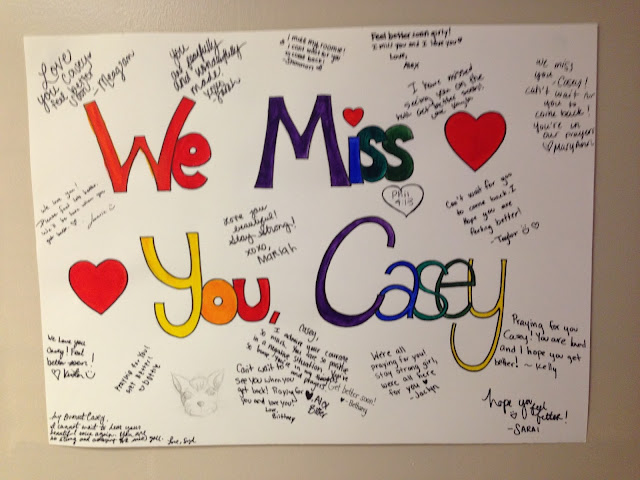 Love
you Casey
Feel
better
soon
Meagan
you
are fearfully
and wonderfully
made
I miss my roomie!
can't wait for you
to come back!
Feel better soon girly!
I miss you and I love you
Love,
Alex
I have missed
seeing you on the
bus get better soon.
We miss
you Casey!
Can't wait for
you to
come back!
You're in
our prayers
MaryAnn
We Miss
Phil.
4:13
We love you!
Please feel better
Can't wait for you
to come back I
Hope you are
feeling better!
- Taylor
Love you
beautiful!
Stay strong!
xoxo,
Mariah
You, Casey
We love you
Casey! Feel
better soon!
Praying for you!
Get better!
Casey,
I admire your courage
so much. You have
a positive
Can't wait to
see you when you
get back! Praying for
you and love you!
Love,
Brittany
Alex
Get better soon!
- Bethany
We're all
praying for you!
Stay strong girl,
we're all here
for you
- Jaclyn
Praying for you
Casey! You are loved
and I hope you get
better! ~ Kelly
hope you feel
better!
- SARAI
I cannot wait to see your
beautiful face again. You are
so strong and
Love,